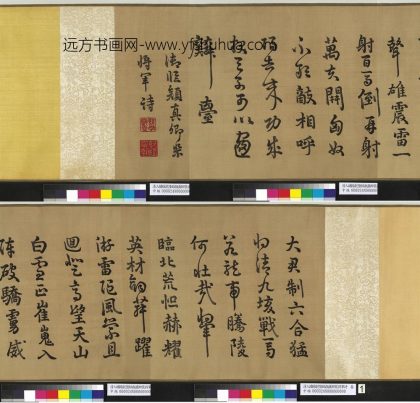 远方书画网-www.yfshuhua.com
聲雄震雷一
射百馬倒再射
萬夫開匈奴
不敢敵相呼
歸去來功成
報天子可以畫
麟臺
御臨顏真卿裴
將軍詩
大君制六合猛
將清九垓戰馬
若龍虎騰陵
何壯哉
臨北荒烜赫耀
英材劍舞躍
游電隨風縈且
迴登高望天山
白雪正崔嵬入
陣破驕虜威
1